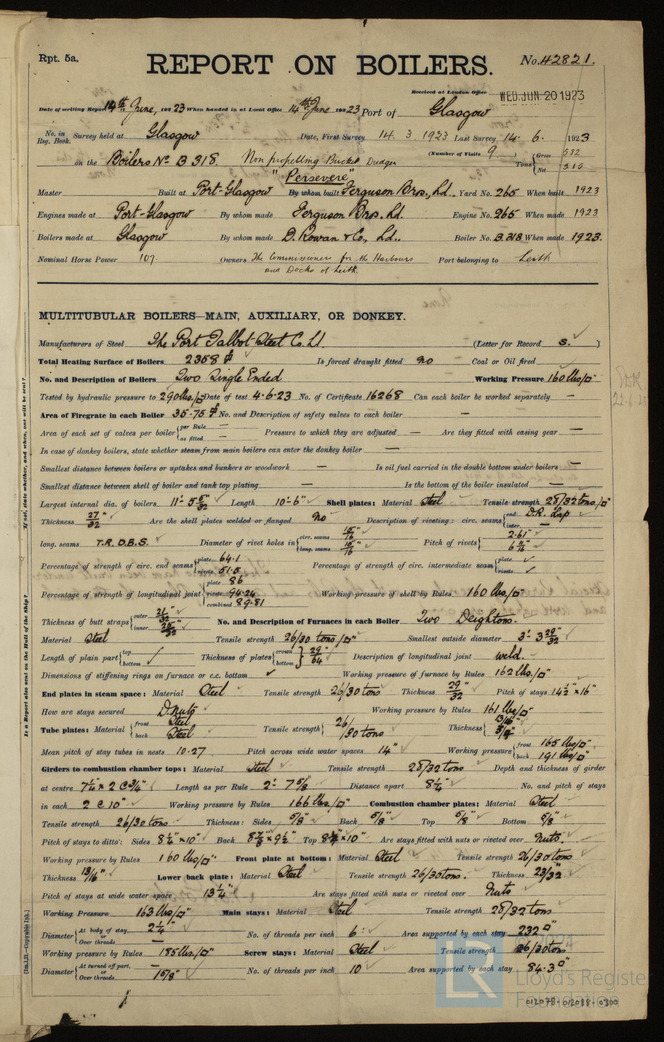 Rpt. 5a.
REPORT ON BOILERS.
No. 42821.
Received at London Office WED. JUN 20 1923
Date of writing Report 14th June, 1923 When handed in at Local Office 14th June 1923 Port of Glasgow
No. in Reg. Book. Survey held at Glasgow Date, First Survey 14. 3. 1923 Last Survey 14. 6. 1923
(Number of Visits 9) Tons { Gross 582 Net 310
on the Boilers No B 318. Non propelling Bucket Dredger "Persevere"
Master Built at Port-Glasgow By whom built Ferguson Bros., Ld. Yard No. 265 When built 1923
Engines made at Port-Glasgow By whom made Ferguson Bros. Ld. Engine No. 265 When made 1923
Boilers made at Glasgow By whom made D. Rowan & Co., Ld., Boiler No. B.318 When made 1923.
Nominal Horse Power 107. Owners The Commissioners for the Harbours and Docks of Leith Port belonging to Leith
MULTITUBULAR BOILERS—MAIN, AUXILIARY, OR DONKEY.
Manufacturers of Steel The Port Talbot Steel Co. Ld. (Letter for Record S.)
Total Heating Surface of Boilers 2358 Is forced draught fitted no Coal or Oil fired
No. and Description of Boilers Two Single Ended Working Pressure 160 lbs/□"
Tested by hydraulic pressure to 290 lbs/□" Date of test 4.6.23 No. of Certificate 16268 Can each boiler be worked separately —
Area of Firegrate in each Boiler 35.75 No. and Description of safety valves to each boiler —
Area of each set of valves per boiler { per Rule — as fitted — Pressure to which they are adjusted — Are they fitted with easing gear —
In case of donkey boilers, state whether steam from main boilers can enter the donkey boiler —
Smallest distance between boilers or uptakes and bunkers or woodwork — Is oil fuel carried in the double bottom under boilers —
Smallest distance between shell of boiler and tank top plating — Is the bottom of the boiler insulated —
Largest internal dia. of boilers 11'-5 5/32" Length 10'-6" Shell plates: Material Steel Tensile strength 28/32 tons/□"
Thickness 27/32 Are the shell plates welded or flanged No Description of riveting: circ. seams { end D.R. Lap inter. —
long. seams T.R.D.B.S. Diameter of rivet holes in { circ. seams 15/16 long. seams 15/16 Pitch of rivets { 2.61"
Percentage of strength of circ. end seams { plate 64.1 rivets 51.5 Percentage of strength of circ. intermediate seam { plate rivets
Percentage of strength of longitudinal joint { plate 86 rivets 94.24 combined 89.81 Working pressure of shell by Rules 160 lbs/□"
Thickness of butt straps { outer 21/32" inner 25/32 No. and Description of Furnaces in each Boiler Two Deightons.
Material Steel Tensile strength 26/30 tons/□" Smallest outside diameter 3'-3 29/32"
Length of plain part { top bottom Thickness of plates { crown bottom } 29/64 Description of longitudinal joint weld.
Dimensions of stiffening rings on furnace or c.c. bottom Working pressure of furnace by Rules 162 lbs./□"
End plates in steam space: Material Steel Tensile strength 26/30 tons Thickness 29/32 Pitch of stays 14½" × 16"
How are stays secured D.nuts Working pressure by Rules 161 lbs/□"
Tube plates: Material { front Steel back Steel Tensile strength { 26/30 tons Thickness { 13/16" 5/8"
Mean pitch of stay tubes in nests 10.27 Pitch across wide water spaces 14" Working pressure { front 165 lbs/□" back 191 lbs/□"
Girders to combustion chamber tops: Material Steel Tensile strength 28/32 tons Depth and thickness of girder
at centre 7¼" × 2 @ ¾" Length as per Rule 2'-7 5/8 Distance apart 8¼" No. and pitch of stays
in each 2 @ 10" Working pressure by Rules 166 lbs./□" Combustion chamber plates: Material Steel
Tensile strength 26/30 tons Thickness: Sides 5/8" Back 5/8" Top 5/8" Bottom 5/8"
Pitch of stays to ditto: Sides 8½" × 10" Back 8⅞" × 9½" Top 8¼" × 10" Are stays fitted with nuts or riveted over Nuts.
Working pressure by Rules 160 lbs/□" Front plate at bottom: Material Steel Tensile strength 26/30 tons
Thickness 13/16" Lower back plate: Material Steel Tensile strength 26/30 tons. Thickness 23/32
Pitch of stays at wide water space 13¼" Are stays fitted with nuts or riveted over Nuts
Working Pressure 163 lbs/□" Main stays: Material Steel Tensile strength 28/32 tons
Diameter { At body of stay, 2¼" or Over threads — No. of threads per inch 6 Area supported by each stay 232 □"
Working pressure by Rules 185 lbs./□" Screw stays: Material Steel Tensile strength 26/30 tons
Diameter { At turned off part, — or Over threads 1 5/8" No. of threads per inch 10 Area supported by each stay 84.3 □"
Is a Report also sent on the Hull of the Ship?
If not, state whether, and when, one will be sent?
LR
Lloyd's Register
Foundation
012079-012088-0300